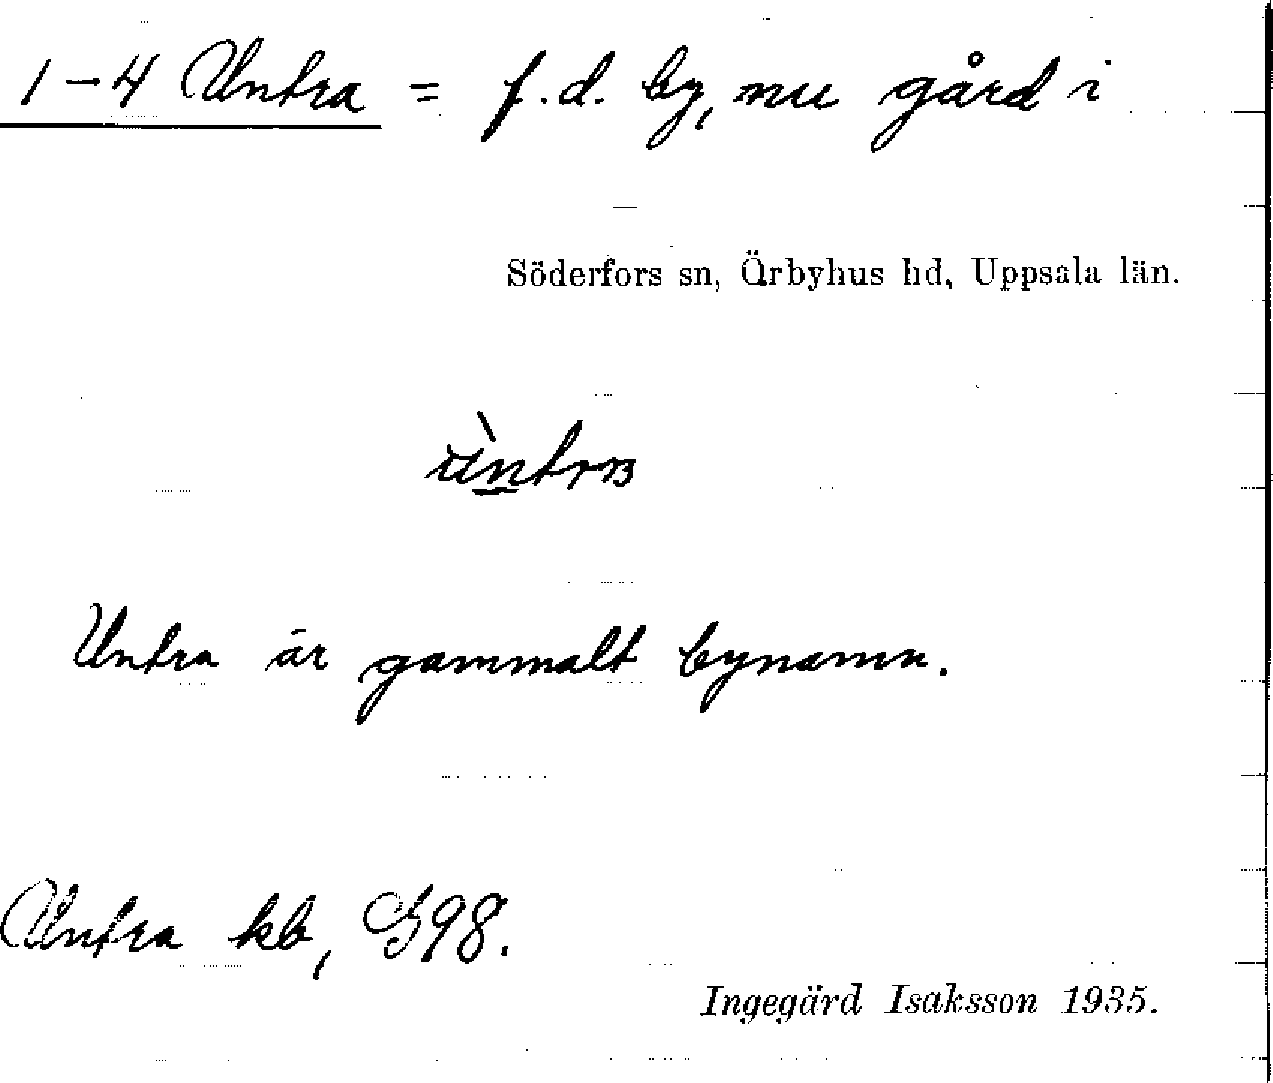 1-4 Untra = f.d. by, nu gård i
Söderfors sn, Örbyhus hd, Uppsala län.
Untra är gammalt bynamn.
Untra kb, G98.
Ingegärd Isaksson 1935.